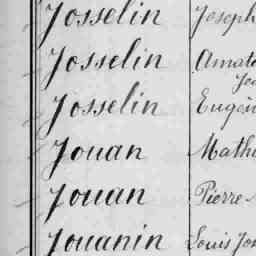 Josselin Joseph
Josselin Amato
Jos
Josselin Eugèn
Jouan Mathu
Jouan Pierre
Jouanin Louis Jos